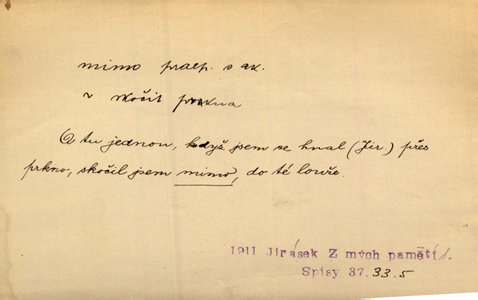 mimo praep. s ak.
~ skočil prkna
A tu jednou, když jsem se hnal (Jir) přes
prkno, skočil jsem mimo, do té louže.
1911 Jirásek Z mých pamětí 1.
Spisy 37. 33.5